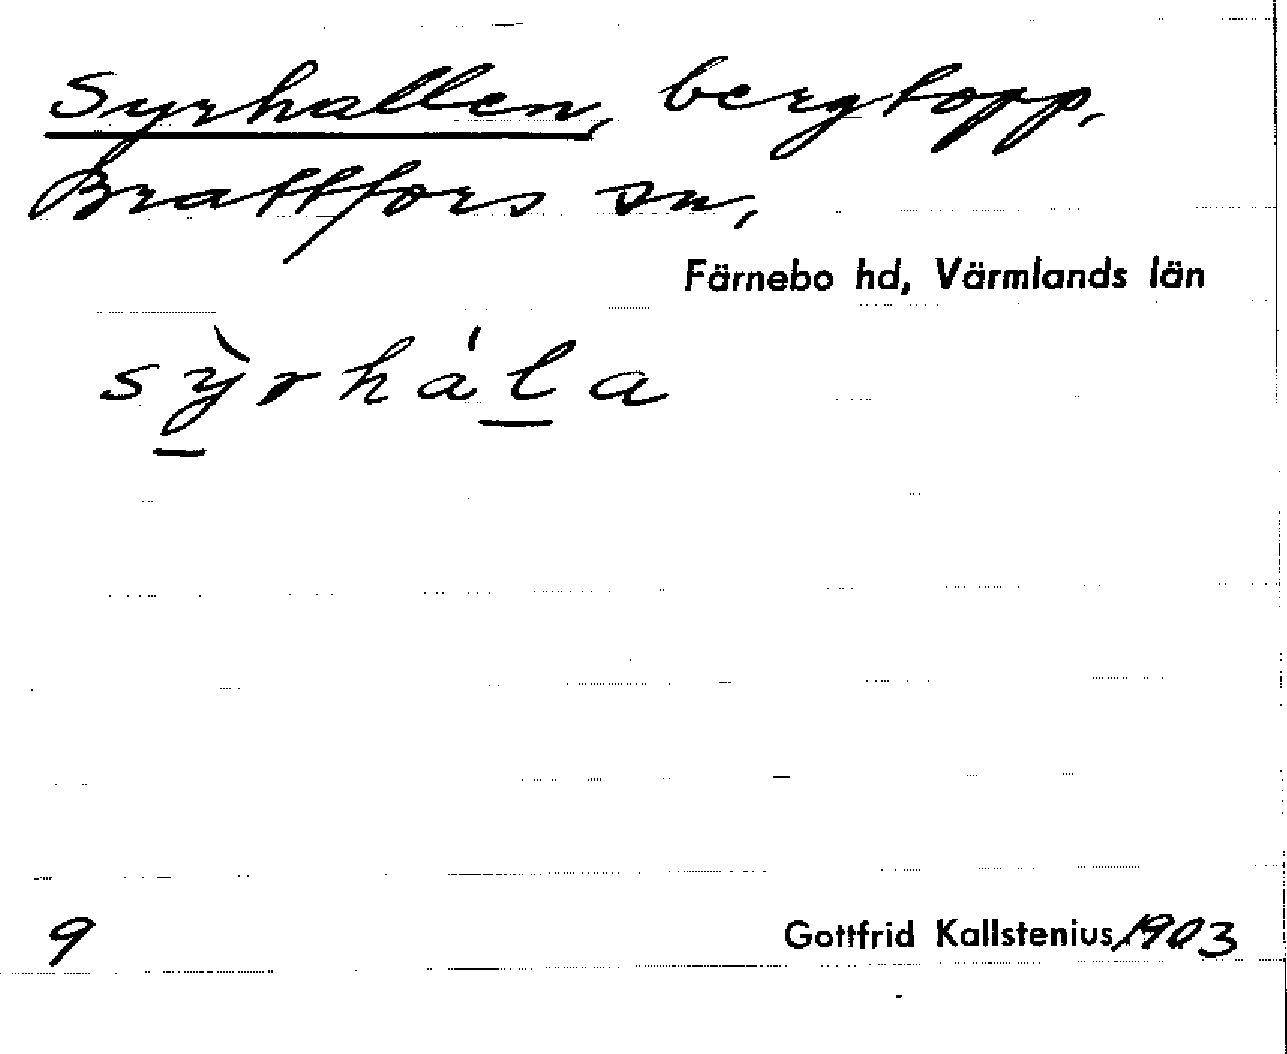 Syrhallen, bergtopp,
Brattfors sn,
Färnebo hd, Värmlands län
sỳ̱rháḻa
9
Gottfrid Kallstenius 1903